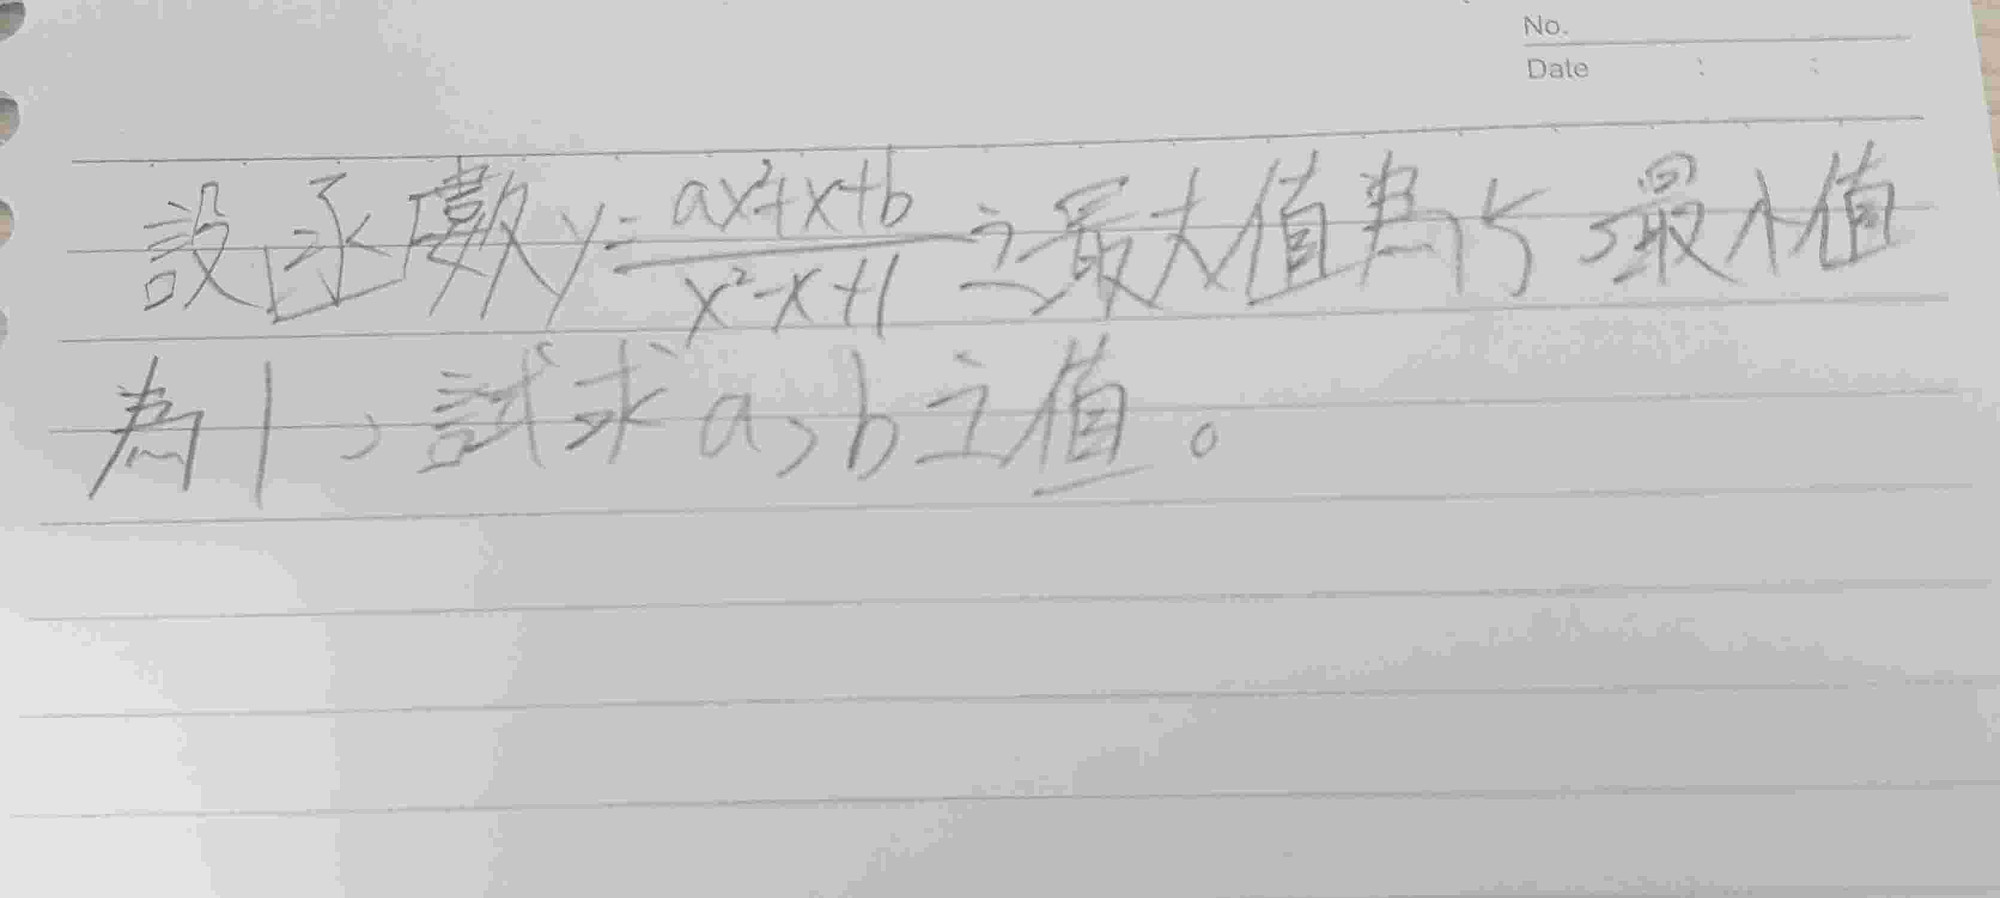 No.
Date : :
設函數y=\frac{ax²+x+b}{x²-x+1}之最大值為5，最小值
為1，試求a，b之值。